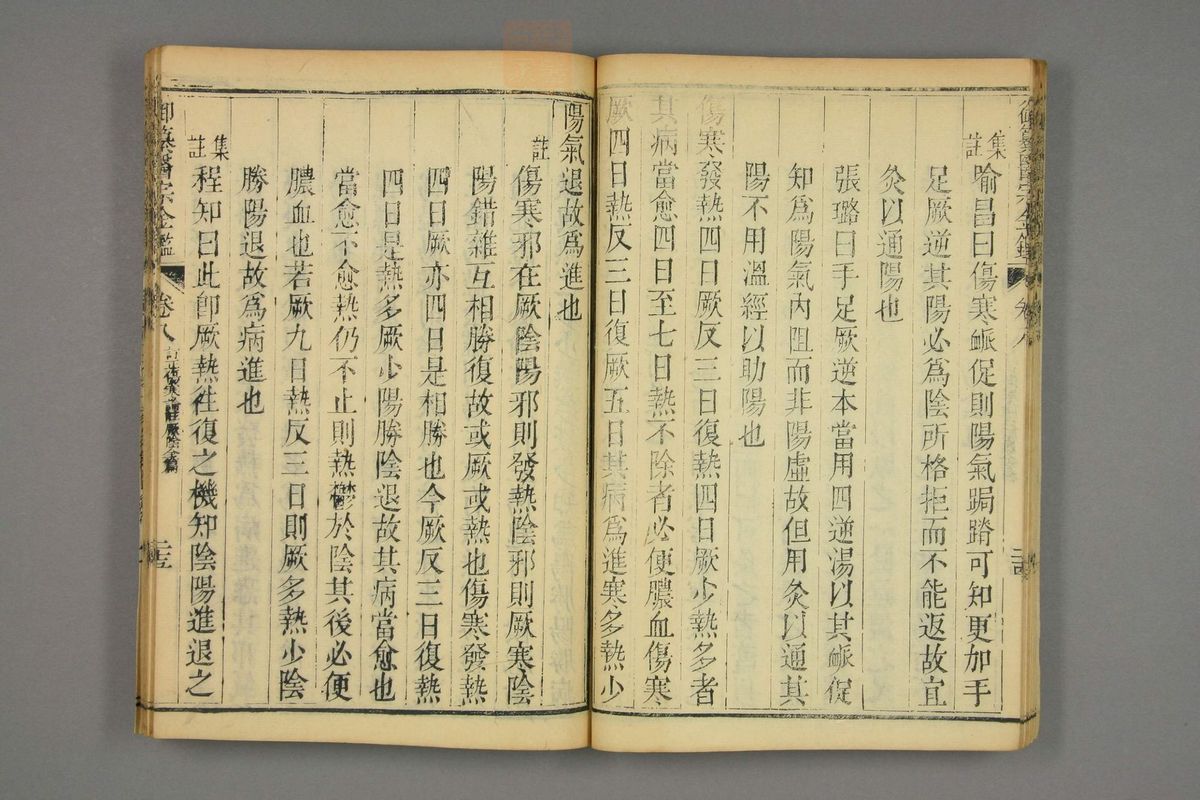 集註
喻昌曰傷寒䘑促則陽氣跼蹐可知更加手
足厥逆其陽必為陰所格拒而不能返故宜
灸以通陽也
張璐曰手足厥逆本當用四逆湯以其䘑促
知為陽氣內阻而非陽虛故但用灸以通其
陽不用溫經以助陽也
傷寒發熱四日厥反三日復熱四日厥少熱多者
其病當愈四日至七日熱不除者必便膿血傷寒
厥四日熱反三日復厥五日其病為進寒多熱少
陽氣退故為進也
註
傷寒邪在厥陰陽邪則發熱陰邪則厥寒陰
陽錯雜互相勝復故或厥或熱也傷寒發熱
四日厥亦四日是相勝也今厥反三日復熱
四日是熱多厥少陽勝陰退故其病當愈也
當愈不愈熱仍不止則熱鬱於陰其後必便
膿血也若厥九日熱反三日則厥多熱少陰
勝陽退故為病進也
集註
程知曰此卽厥熱往復之機知陰陽進退之
御纂醫宗金鑑 卷八